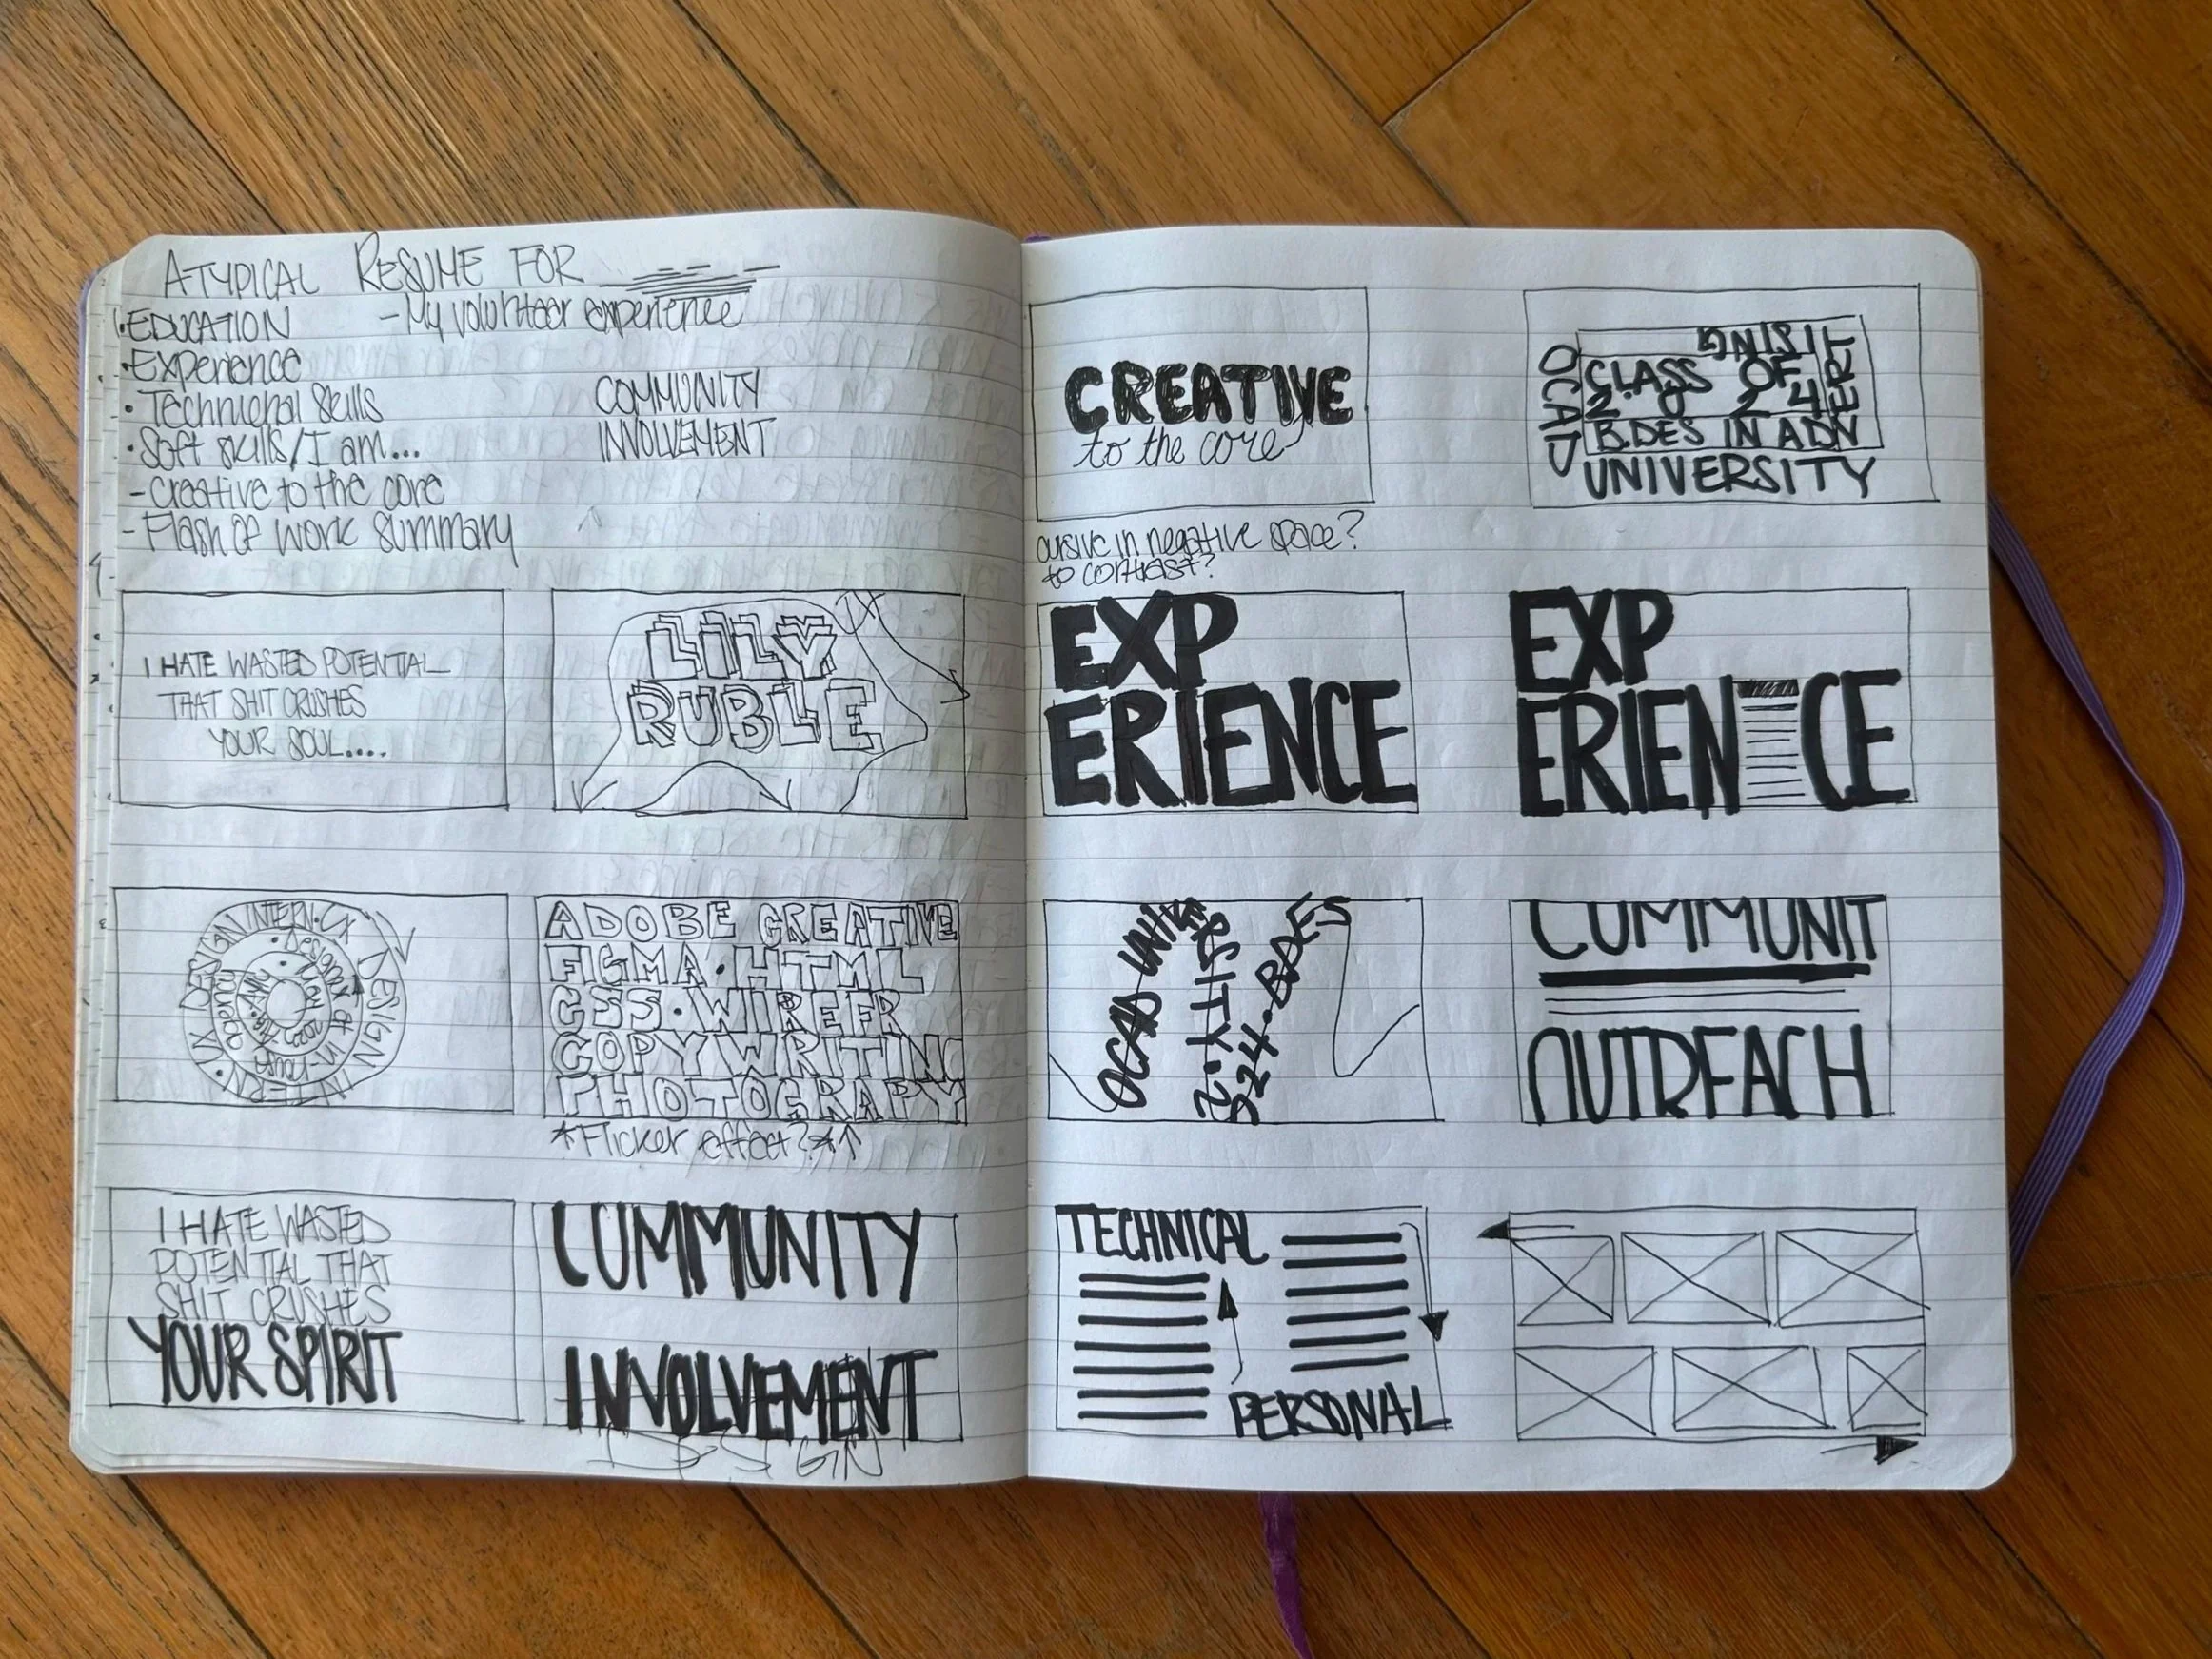 ATYPICAL RESUME FOR
• EDUCATION
- My volunteer experience
• Experience
• Technichal Skills
• Soft skills/I am...
- Creative to the core
- Flash of work summary
COMMUNITY
INVOLVEMENT
I HATE WASTED POTENTIAL
THAT SHIT CRUSHES
YOUR SOUL....
LILY
RUBLE
UX DESIGN INTERN • CX DESIGN INTERN •
ADOBE CREATIVE
FIGMA • HTML
CSS • WIREFR
COPYWRITING
PHOTOGRAPY
*Flicker effect?*↑
I HATE WASTED
POTENTIAL THAT
SHIT CRUSHES
YOUR SPIRIT
COMMUNITY
INVOLVEMENT
DESIGN
CREATIVE
to the core
cursive in negative space?
to contrast?
OCAD
UNIVERSITY
CLASS OF
2 0 2 4
B.DES IN ADV
ERT
ISING
EXP
ERIENCE
EXP
ERIEN CE
OCAD UNIVERSITY • 2024 • BDES
COMMUNIT
OUTREACH
TECHNICAL
PERSONAL